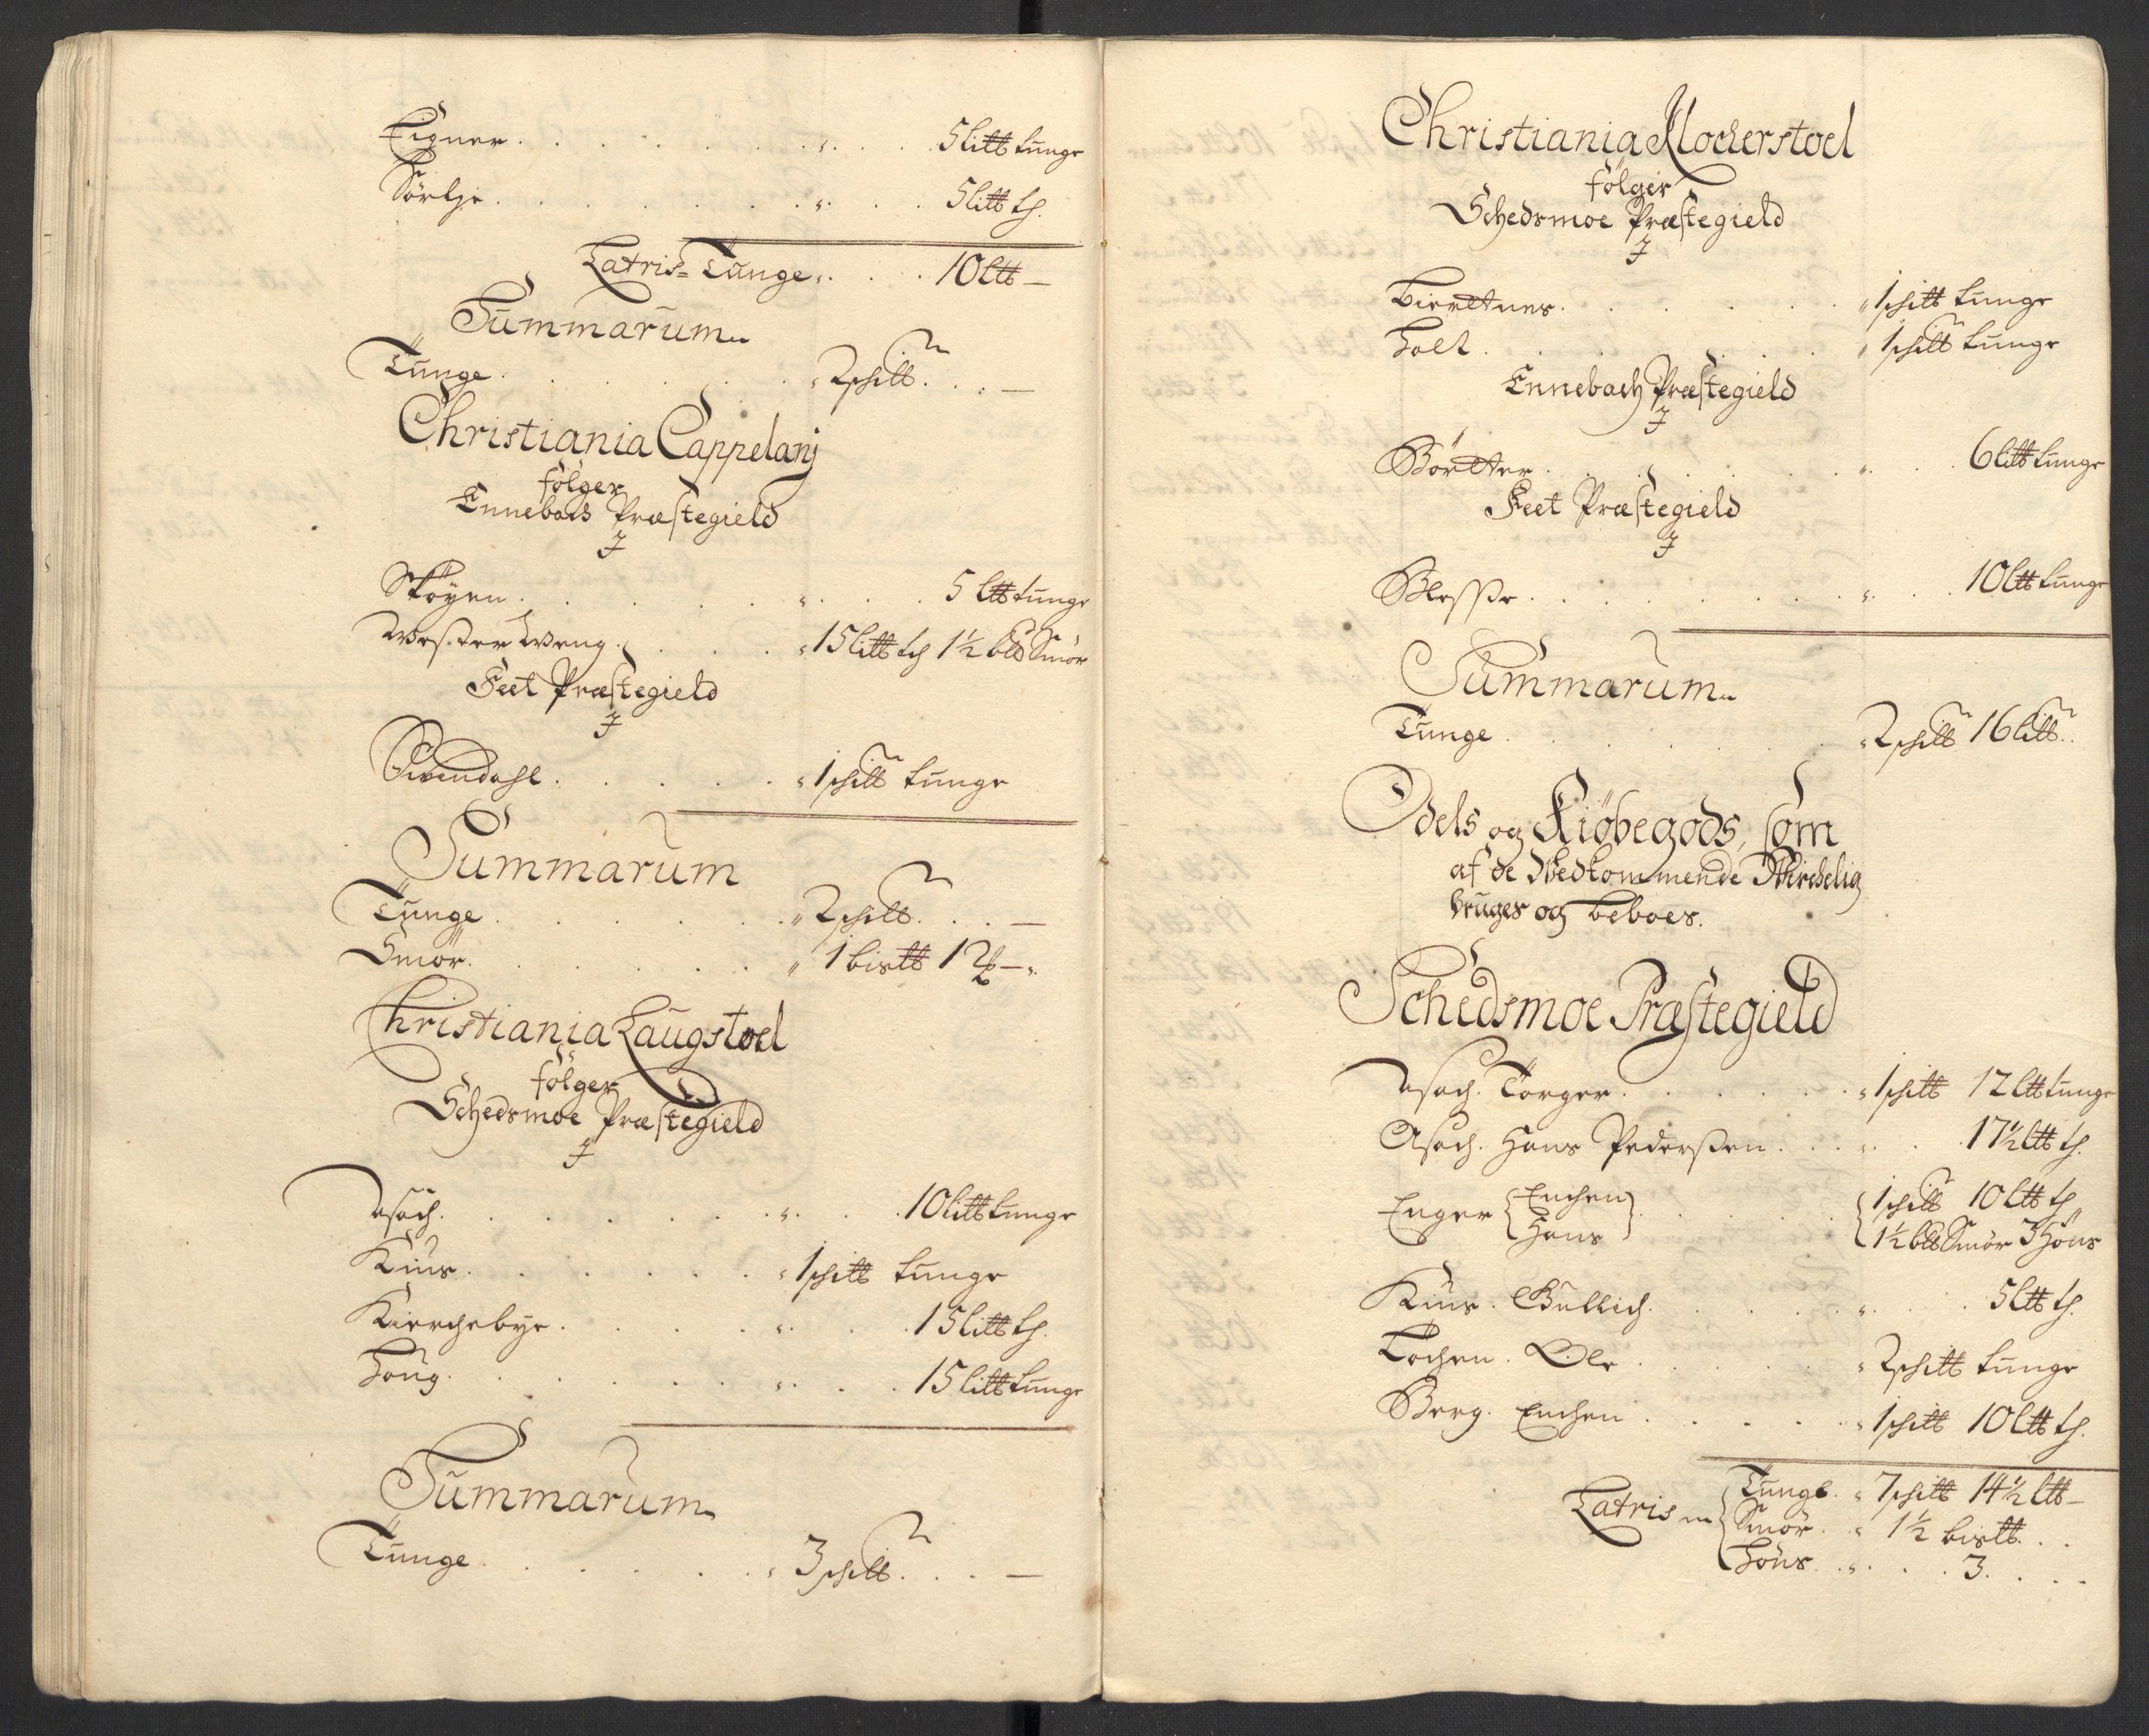 Tigner . . . . . . . 5 litt tunge
Sørlje . . . . . . . 5 litt th.
Latris= Tunge . . . 10 ltt —
Summarum
Tunge . . . . . . 2 schitt . . . —
Christiania Cappelanj
følger
Ennebach Præstegield
J
Skøyen . . . . . . 5 ltt tunge
Wester Weng . . . 15 litt th 1½ bltt Smør
Feet Præstegield
J
Svendahl . . . . . 1 schitt tunge
Summarum
Tunge . . . . . . 2 schitt . . . —
Smør . . . . . . 1 bistt 1 ½ —
Christiania Laugstoel
følger
Schedsmoe Præstegield
J
Asach . . . . . . . 10 litt tunge
Kius . . . . . . 1 schitt tunge
Kierchebye . . . . . 15 litt th.
Houg . . . . . . . 15 litt tunge
Summarum
Tunge . . . . . . 3 schitt . . . —
Christiania Klocherstoel
følger
Schedsmoe Præstegield
J
Bierttnes . . . . . 1 schitt tunge
Holt . . . . . . 1 schitt tunge
Ennebach Præstegield
J
Børtter . . . . . . 6 litt tunge
Feet Præstegield
J
Blesse . . . . . . . 10 ltt tunge
Summarum
Tunge . . . . . . 2 schitt 16 litt . .
Odels og Kiøbegods, som
af de Wedkommende Wirchelig
bruges og beboes.
Schedsmoe Præstegield
Asach. Torger . . . . . 1 schitt 12 ltt tunge
Asach. Hans Pedersen . . . . 17½ ltt th.
Enger { Enchen } . . . . { 1 schitt 10 ltt th
Hans 1½ bltt Smør 3 Høns
Kius. Gullich . . . . . 5 ltt th.
Tøchen. Ole . . . . . 2 schitt tunge
Berg. Enchen . . . . . 1 schitt 10 ltt th.
Latris { Tunge . 7 schitt 14½ ltt —
Smør . . 1½ bistt . . .
Høns . . . . 3 . . . .